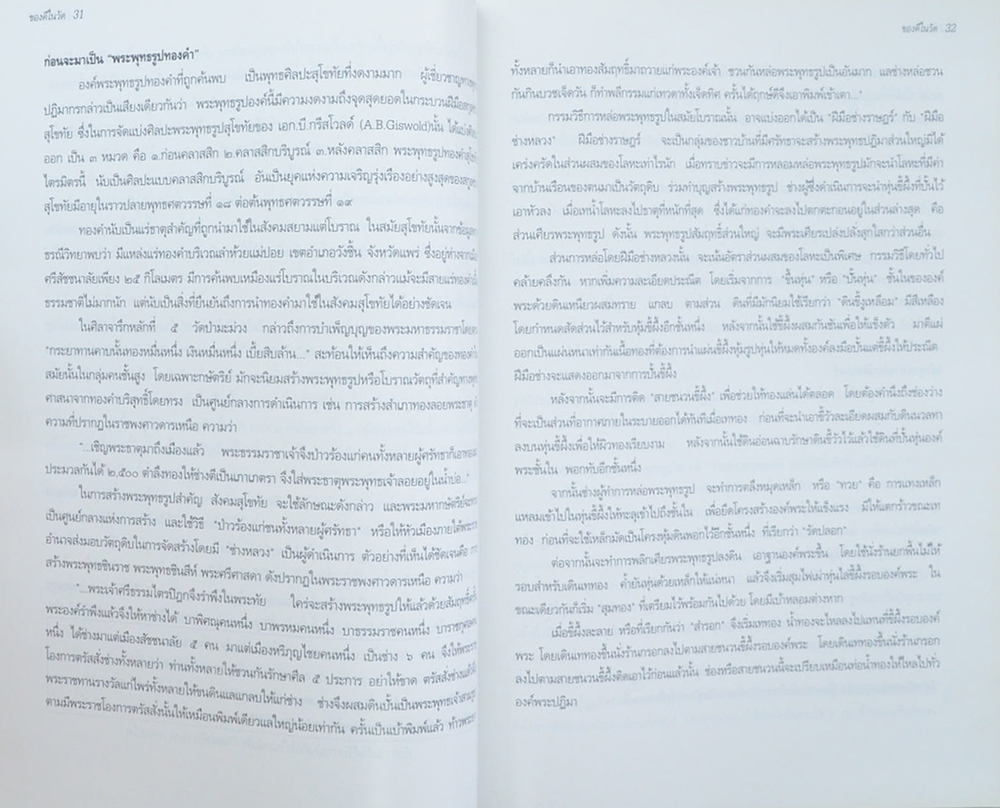 ของดีในวัด 31
ก่อนจะมาเป็น "พระพุทธรูปทองคำ"
องค์พระพุทธรูปทองคำที่ถูกค้นพบ เป็นพุทธศิลปะสุโขทัยที่งดงามมาก ผู้เชี่ยวชาญทาง
ปฏิมากรกล่าวเป็นเสียงเดียวกันว่า พระพุทธรูปองค์นี้มีความงดงามถึงจุดสุดยอดในกระบวนฝีมือ
สุโขทัย ซึ่งในการจัดแบ่งศิลปะพระพุทธรูปสุโขทัยของ เอก.บี.กรีสโวลด์ (A.B.Giswold)นั้น ได้แบ่ง
ออก เป็น ๓ หมวด คือ ๑.ก่อนคลาสสิก ๒.คลาสสิกบริบูรณ์ ๓.หลังคลาสสิก พระพุทธรูปทองคำ
ไตรมิตรนี้ นับเป็นศิลปะแบบคลาสสิกบริบูรณ์ อันเป็นยุคแห่งความเจริญรุ่งเรืองอย่างสูงสุดของ
สุโขทัยมีอายุในราวปลายพุทธศตวรรษที่ ๑๘ ต่อต้นพุทธศตวรรษที่ ๑๙
ทองคำนับเป็นแร่ธาตุสำคัญที่ถูกนำมาใช้ในสังคมสยามแต่โบราณ ในสมัยสุโขทัยนั้นจากข้อมูล
ธรณีวิทยาพบว่า มีแหล่งแร่ทองคำบริเวณลำห้วยแม่ปอย เขตอำเภอวังชิ้น จังหวัดแพร่ ซึ่งอยู่ห่างจาก
ศรีสัชชนาลัยเพียง ๒๕ กิโลเมตร มีการค้นพบเหมืองแร่โบราณในบริเวณดังกล่าวแม้จะมีสายแร่ทองคำ
ธรรมชาติไม่มากนัก แต่นับเป็นสิ่งที่ยืนยันถึงการนำทองคำมาใช้ในสังคมสุโขทัยได้อย่างชัดเจน
ในศิลาจารึกหลักที่ ๕ วัดป่ามะม่วง กล่าวถึงการบำเพ็ญบุญของพระมหาธรรมราชาโดย
"กระยาทานคาบนั้นทองหมื่นหนึ่ง เงินหมื่นหนึ่ง เบี้ยสิบล้าน..." สะท้อนให้เห็นถึงความสำคัญของทองคำใน
สมัยนั้นในกลุ่มคนชั้นสูง โดยเฉพาะกษัตริย์ มักจะนิยมสร้างพระพุทธรูปหรือโบราณวัตถุที่สำคัญทาง
ศาสนาจากทองคำบริสุทธิ์โดยทรง เป็นศูนย์กลางการดำเนินการ เช่น การสร้างสำเภาทองลอยพระธาตุ
ความที่ปรากฏในราชพงศาวดารเหนือ ความว่า
"...เชิญพระธาตุมาถึงเมืองแล้ว พระธรรมราชาเจ้าจึงป่าวร้องแก่คนทั้งหลายผู้ศรัทธาก็เอาทอง
ประมวลกันได้ ๒,๕๐๐ ตำลึงทองให้ช่างตีเป็นเภาเภตรา จึงใส่พระธาตุพระพุทธเจ้าลอยอยู่ในน้ำบ่อ..."
ในการสร้างพระพุทธรูปสำคัญ สังคมสุโขทัย จะใช้ลักษณะดังกล่าว และพระมหากษัตริย์จะทรง
เป็นศูนย์กลางแห่งการสร้าง และใช้วิธี "ป่าวร้องแก่ชนทั้งหลายผู้ศรัทธา" หรือให้หัวเมืองภายใต้พระราช
อำนาจส่งมอบวัตถุดิบในการจัดสร้างโดยมี "ช่างหลวง" เป็นผู้ดำเนินการ ตัวอย่างที่เห็นได้ชัดเจนคือ การ
สร้างพระพุทธชินราช พระพุทธชินสีห์ พระศรีศาสดา ดังปรากฏในพระราชพงศาวดารเหนือ ความว่า
"...พระเจ้าศรีธรรมไตรปิฎกจึงรำพึงในพระทัย ใคร่จะสร้างพระพุทธรูปให้แล้วด้วยสัมฤทธิ์
พระองค์รำพึงแล้วจึงให้หาช่างได้ บาพิศณุคนหนึ่ง บาพรหมคนหนึ่ง บาธรรมราชคนหนึ่ง บาราชกุศลคน
หนึ่ง ได้ช่างมาแต่เมืองสัชชนาลัย ๕ คน มาแต่เมืองหริภุญไชยคนหนึ่ง เป็นช่าง ๖ คน จึงให้พระราช
โองการตรัสสั่งช่างทั้งหลายว่า ท่านทั้งหลายให้ชวนกันรักษาศีล ๕ ประการ อย่าให้ขาด ตรัสสั่งช่างแล้วจึง
พระราชทานรางวัลแก่ไพร่ทั้งหลายให้ขนดินแลแกลบให้แก่ช่าง ช่างจึงผสมดินปั้นเป็นพระพุทธเจ้าสาม
ตามมีพระราชโองการตรัสสั่งนั้นให้เหมือนพิมพ์เดียวแลใหญ่น้อยเท่ากัน ครั้นเป็นเบ้าพิมพ์แล้ว ท้าวพระยา
ของดีในวัด 32
ทั้งหลายก็นำเอาทองสัมฤทธิ์มาถวายแก่พระองค์เจ้า ชวนกันหล่อพระพุทธรูปเป็นอันมาก แลช่างหล่อชวน
กันกินบวชเจ็ดวัน ก็ทำพลีกรรมแก่เทวดาทั้งเจ็ดทิศ ครั้นได้ฤกษ์ดีจึงเอาพิมพ์เข้าเตา..."
กรรมวิธีการหล่อพระพุทธรูปในสมัยโบราณนั้น อาจแบ่งออกได้เป็น "ฝีมือช่างราษฎร์" กับ "ฝีมือ
ช่างหลวง" ฝีมือช่างราษฎร์ จะเป็นกลุ่มของชาวบ้านที่มีศรัทธาจะสร้างพระพุทธปฏิมาส่วนใหญ่มิได้
เคร่งครัดในส่วนผสมของโลหะเท่าไรนัก เมื่อทราบข่าวจะมีการหลอมหล่อพระพุทธรูปมักจะนำโลหะที่มีค่า
จากบ้านเรือนของตนมาเป็นวัตถุดิบ ร่วมทำบุญสร้างพระพุทธรูป ช่างผู้ซึ่งดำเนินการจะนำหุ่นขี้ผึ้งที่ปั้นไว้
เอาหัวลง เมื่อเทน้ำโลหะลงไปธาตุที่หนักที่สุด ซึ่งได้แก่ทองคำจะลงไปตกตะกอนอยู่ในส่วนล่างสุด คือ
ส่วนเศียรพระพุทธรูป ดังนั้น พระพุทธรูปสัมฤทธิ์ส่วนใหญ่ จะมีพระเศียรเปล่งปลั่งสุกใสกว่าส่วนอื่น
ส่วนการหล่อโดยฝีมือช่างหลวงนั้น จะเน้นอัตราส่วนผสมของโลหะเป็นพิเศษ กรรมวิธีโดยทั่วไป
คล้ายคลึงกัน หากเพิ่มความละเอียดประณีต โดยเริ่มจากการ "ขึ้นหุ่น" หรือ "ปั้นหุ่น" ชั้นในขององค์
พระด้วยดินเหนียวผสมทราย แกลบ ตามส่วน ดินที่มีมักนิยมใช้เรียกว่า "ดินขี้งูเหลือม" มีสีเหลือง
โดยกำหนดสัดส่วนไว้สำหรับหุ้มขี้ผึ้งอีกชั้นหนึ่ง หลังจากนั้นใช้ขี้ผึ้งผสมกับชันเพื่อให้แข็งตัว มาตีแผ่
ออกเป็นแผ่นหนาเท่ากับเนื้อทองที่ต้องการนำแผ่นขี้ผึ้งหุ้มรูปหุ่นให้หมดทั้งองค์ลงมือปั้นแต่ขี้ผึ้งให้ประณีต
ฝีมือช่างจะแสดงออกมาจากการปั้นขี้ผึ้ง
หลังจากนั้นจะมีการติด "สายชนวนขี้ผึ้ง" เพื่อช่วยให้ทองแล่นได้ตลอด โดยต้องคำนึงถึงช่องว่าง
ที่จะเป็นส่วนที่อากาศภายในระบายออกได้ทันทีเมื่อเททอง ก่อนที่จะนำเอาขี้วัวละเอียดผสมกับดินนวลทา
ลงบนหุ่นขี้ผึ้งเพื่อให้ผิวทองเรียบงาม หลังจากนั้นใช้ดินอ่อนฉาบรักษาดินขี้วัวไว้แล้วใช้ดินที่ปั้นหุ่นองค์
พระชั้นใน พอกทับอีกชั้นหนึ่ง
จากนั้นช่างผู้ทำการหล่อพระพุทธรูป จะทำการตลึงหมุดเหล็ก หรือ "ทวย" คือ การแทงเหล็ก
แหลมเข้าไปในหุ่นขี้ผึ้งให้ทะลุเข้าไปถึงชั้นใน เพื่อยึดโครงสร้างองค์พระให้แข็งแรง มิให้แตกร้าวขณะเท
ทอง ก่อนที่จะใช้เหล็กมัดเป็นโครงหุ้มดินพอกไว้อีกชั้นหนึ่ง ที่เรียกว่า "รัดปลอก"
ต่อจากนั้นจะทำการพลิกเศียรพระพุทธรูปลงดิน เอาฐานองค์พระขึ้น โดยใช้นั่งร้านยกพื้นไม้ให้
รอบสำหรับเดินเททอง ค้ำยันหุ่นด้วยเหล็กให้แน่หนา แล้วจึงเริ่มสุมไฟเผาหุ่นไล่ขี้ผึ้งรอบองค์พระ ใน
ขณะเดียวกันก็เริ่ม "สุมทอง" ที่เตรียมไว้พร้อมกันไปด้วย โดยมีเบ้าหลอมต่างหาก
เมื่อขี้ผึ้งละลาย หรือที่เรียกกันว่า "สำรอก" จึงเริ่มเททอง น้ำทองจะไหลลงไปแทนที่ขี้ผึ้งรอบองค์
พระ โดยเดินเททองขึ้นนั่งร้านกรอกลงไปตามสายชนวนขี้ผึ้งรอบองค์พระ โดยเดินเททองขึ้นนั่งร้านกรอก
ลงไปตามสายชนวนขี้ผึ้งติดเอาไว้ก่อนแล้วนั้น ช่องหรือสายชนวนนี้จะเปรียบเหมือนท่อน้ำทองให้ไหลไปทั่ว
องค์พระปฏิมา